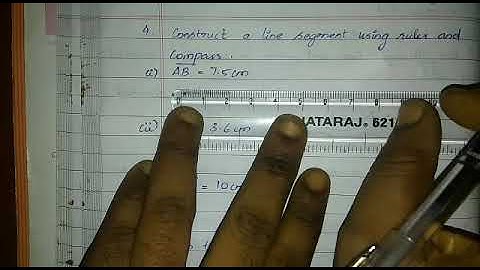 4. Construct a line segment using ruler and
compass.
i) AB = 7.5cm
1 2 3 4 5 6 7 8
NATARAJ 621
iii) 3.6cm
= 10cm